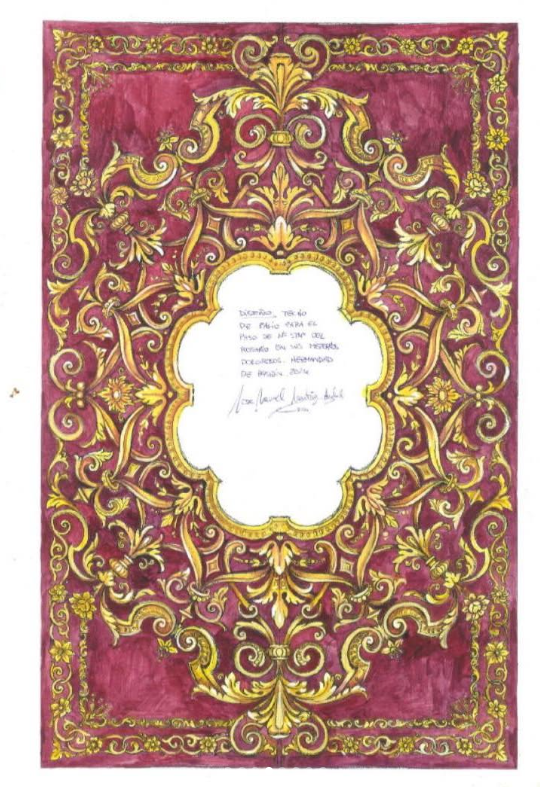 DISEÑO, TECHO
DE PALIO PARA EL
PASO DE Nª SRA DEL
ROSARIO EN SUS MISTERIOS
DOLOROSOS. HERMANDAD
DE PASIÓN 2014
José Manuel